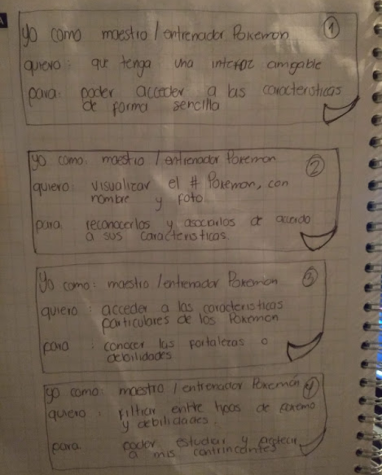 yo como maestro / entrenador Pokemon 1
quiero: que tenga una interfaz amigable
para: poder acceder a las caracteristicas
de forma sencilla
yo como: maestro / entrenador Pokemon 2
quiero: visualizar el # Pokemon, con
nombre y foto.
para: reconocerlos y asociarlos de acuerdo
a sus caracteristicas.
Yo como: maestro / entrenador Pokemon 3
quiero: acceder a las caracteristicas
particulares de los Pokemon
para: conocer las fortalezas o
debilidades
yo como: maestro / entrenador Pokemon 4
quiero: filtrar entre tipos de
y debilidades.
para: poder estudiar y
a mis contrincantes